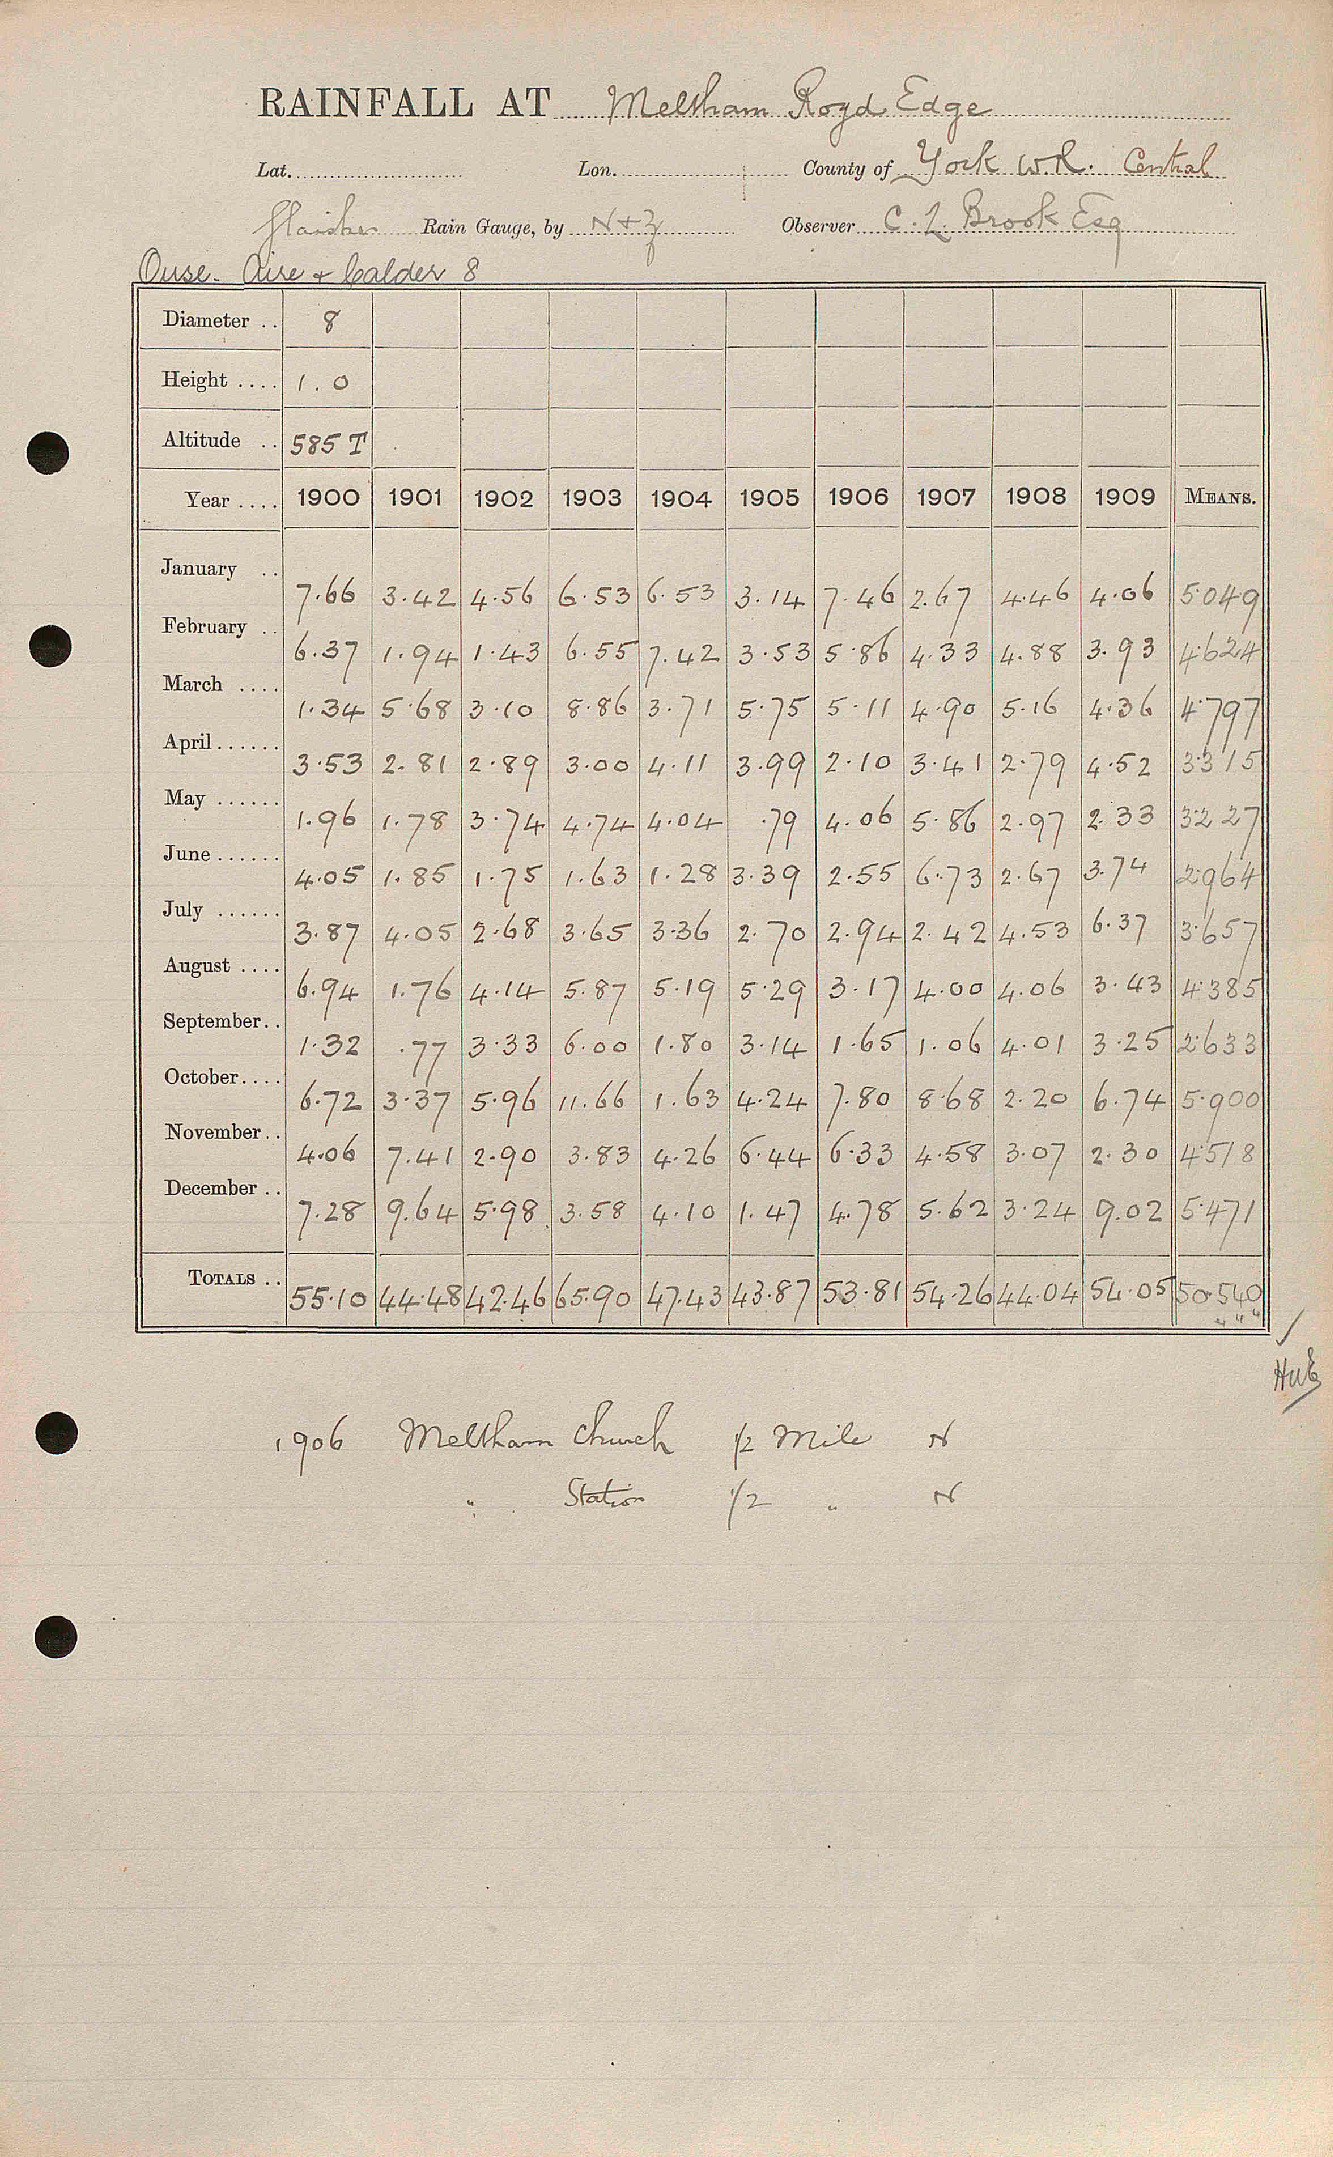 RAINFALL AT Meltham Royd Edge
Lat. Lon. County of York W.R. Central
Glaisher Rain Gauge, by N+Z Observer C. L. Brook Esq
Ouse. Aire + Calder 8
Diameter .. 8
Height .... 1.0
Altitude .. 585 T
Year .... 1900 1901 1902 1903 1904 1905 1906 1907 1908 1909 MEANS.
January .. 7.66 3.42 4.56 6.53 6.53 3.14 7.46 2.67 4.46 4.06 5.049
February .. 6.37 1.94 1.43 6.55 7.42 3.53 5.86 4.33 4.88 3.93 4.624
March .... 1.34 5.68 3.10 8.86 3.71 5.75 5.11 4.90 5.16 4.36 4.797
April ...... 3.53 2.81 2.89 3.00 4.11 3.99 2.10 3.41 2.79 4.52 3.315
May ...... 1.96 1.78 3.74 4.74 4.04 .79 4.06 5.86 2.97 2.33 3.227
June ...... 4.05 1.85 1.75 1.63 1.28 3.39 2.55 6.73 2.67 3.74 2.964
July ...... 3.87 4.05 2.68 3.65 3.36 2.70 2.94 2.42 4.53 6.37 3.657
August .... 6.94 1.76 4.14 5.87 5.19 5.29 3.17 4.00 4.06 3.43 4.385
September.. 1.32 .77 3.33 6.00 1.80 3.14 1.65 1.06 4.01 3.25 2.633
October.... 6.72 3.37 5.96 11.66 1.63 4.24 7.80 8.68 2.20 6.74 5.900
November.. 4.06 7.41 2.90 3.83 4.26 6.44 6.33 4.58 3.07 2.30 4.518
December .. 7.28 9.64 5.98 3.58 4.10 1.47 4.78 5.62 3.24 9.02 5.471
TOTALS .. 55.10 44.48 42.46 65.90 47.43 43.87 53.81 54.26 44.04 54.05 50.540
" " "
1906 Meltham Church 1/2 Mile N
" Station 1/2 " N